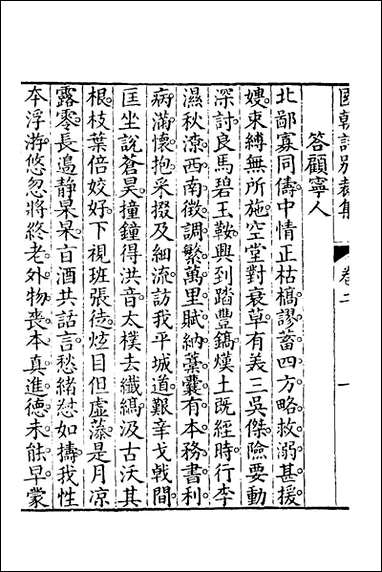 國朝詩別裁集 卷二 一
答顧寧人
北鄙寡同儔中情正枯槁謬蓄四方略救溺甚援
嫂束縛無所施空堂對衰草有美三吳傑險要動
深討良馬碧玉鞍興到踏豐鎬熯土既經時行李
濕秋潦西南徵調繁萬里賦納藁囊有本務書利
病滿懷抱采掇及細流訪我平城道艱辛戈戟間
匡坐說蒼昊撞鐘得洪音太樸去纖縞汲古沃其
根枝葉倍姣好下視班張徒炫目但虛藻是月凉
露零長邊靜杲杲旨酒共話言愁緒惄如擣我性
本浮游悠忽將終老外物喪本真進德未能早蒙